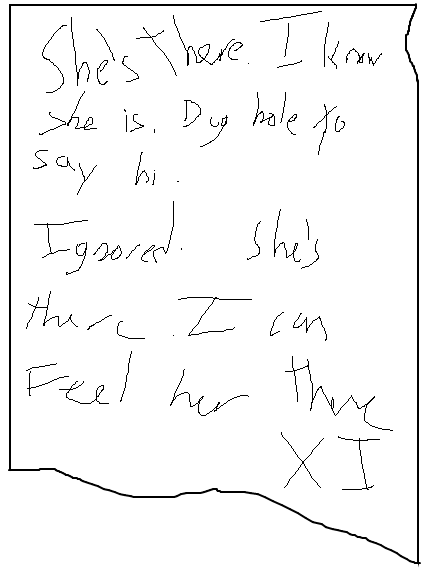 She's there. I know
she is. Dug hole to
say hi.
Ignored. She's
there. I can
Feel her there
XI